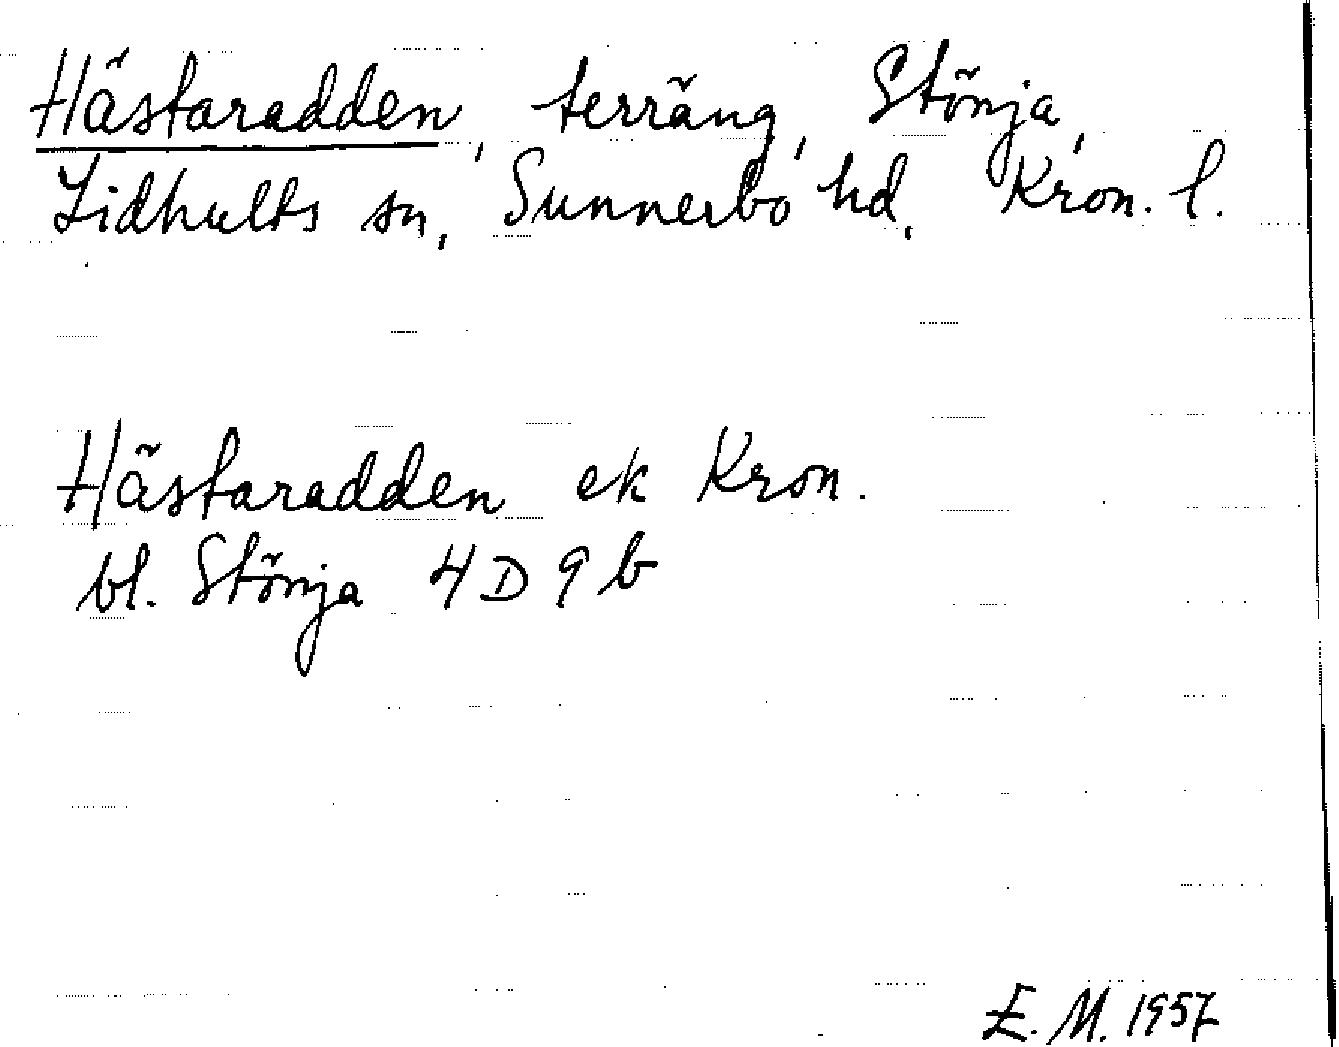 Hästaradden, terräng, Stönja,
Lidhults sn, Sunnerbo hd, Kron. l.
Hästaradden ek Kron.
bl. Stönja 4D 9b
E. M. 1957